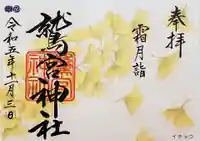 奉拝
霜月詣
鷲宮神社
令和五年十一月三日
イチョウ